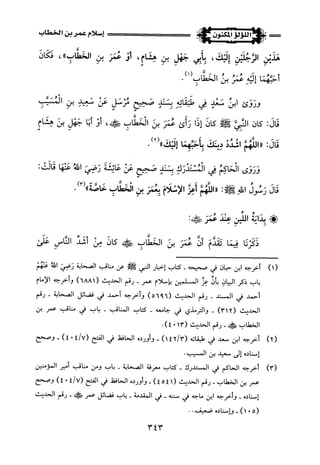 اللؤلؤ المكنون
إسلام عمر بن الخطاب
هَذَيْنِ الرَّجُلَيْنِ إِلَيْكَ، بِأَبِي جَهْلِ بنِ هِشَامٍ، أَوْ عُمَرَ بنِ الْخَطَّابِ»، فَكَانَ
أَحَبَّهُمَا إِلَيْهِ عُمَرُ بنُ الْخَطَّابِ (١).
وَرَوَى ابنُ سَعْدٍ فِي طَبَقَاتِهِ بِسَنَدٍ صَحِيحٍ مُرْسَلٍ عَنْ سَعِيدِ بنِ الْمُسَيَّبِ
قَالَ: كَانَ النَّبِيُّ ﷺ كَانَ إِذَا رَأَى عُمَرَ بنَ الْخَطَّابِ ﷺ، أَوْ أَبَا جَهْلِ بنَ هِشَامٍ
قَالَ: «اللَّهُمَّ اشْدُدْ دِينَكَ بِأَحَبِّهِمَا إِلَيْكَ» (٢).
وَرَوَى الْحَاكِمُ فِي الْمُسْتَدْرَكِ بِسَنَدٍ صَحِيحٍ عَنْ عَائِشَةَ رَضِيَ اللهُ عَنْهَا قَالَتْ:
قَالَ رَسُولُ اللهِ ﷺ: «اللَّهُمَّ أَعِزَّ الإِسْلَامَ بِعُمَرَ بنِ الْخَطَّابِ خَاصَّةً» (٣).
بِدَايَةُ اللِّينِ عِنْدَ عُمَرَ ﷺ:
ذَكَرْنَا فِيمَا تَقَدَّمَ أَنَّ عُمَرَ بنَ الْخَطَّابِ ﷺ كَانَ مِنْ أَشَدِّ النَّاسِ عَلَى
(١) أخرجه ابن حبان في صحيحه - كتاب إخباره النبي ﷺ عن مناقب الصحابة رَضِيَ اللهُ عَنْهُمْ
باب ذكر البيان بأن عِزُّ المسلمين بإسلام عمر - رقم الحديث (٦٨٨١) وأخرجه الإمام
أحمد في المسند - رقم الحديث (٥٦٩٦) وأخرجه أحمد في فضائل الصحابة - رقم
الحديث (٣١٢) - والترمذي في جامعه - كتاب المناقب - باب في مناقب عمر بن
الخطاب ﷺ - رقم الحديث (٤٠١٣).
(٢) أخرجه ابن سعد في طبقاته (١٤٢/٣) - وأورده الحافظ في الفتح (٤٠٤/٧) - وصحح
إسناده إلى سعيد بن المسيب.
(٣) أخرجه الحاكم في المستدرك - كتاب معرفة الصحابة - باب ومن مناقب أمير المؤمنين
عمر بن الخطاب - رقم الحديث (٤٥٤١) - وأورده الحافظ في الفتح (٤٠٤/٧) وصحح
إسناده - وأخرجه ابن ماجه في سننه - في المقدمة - باب فضائل عمر ﷺ - رقم الحديث
(١٠٥) - وإسناده ضعيف..
٣٤٣